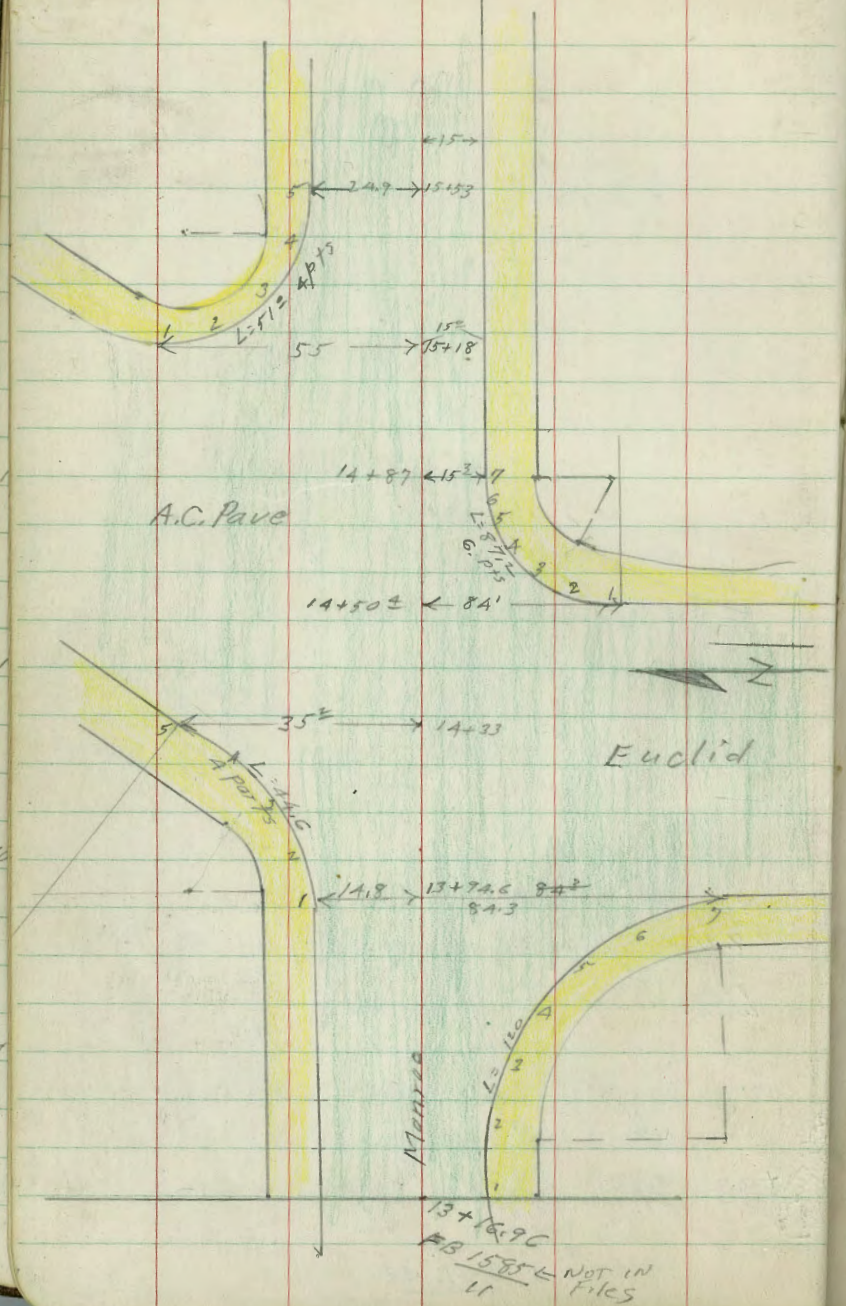 ←15→
5 ←24.9→ 15+53
4
3
1 2 L=51º 4 pts
15º
55 15+18
14+87 ←15³→ 7
6
5
4
3
2
1
L=87.2
6. pts
A.C. Pave
14+50⁴ ← 84'
Z
5 ← 35² 14+33
Euclid
4
L=44.6
4 parts
2
1 ←14.8→ 13+94.6 84³
84.3
7
6
5
4
3
2
1
L= 120
Monroe
13+16.96
FB 1585 ← NOT IN
Files
11